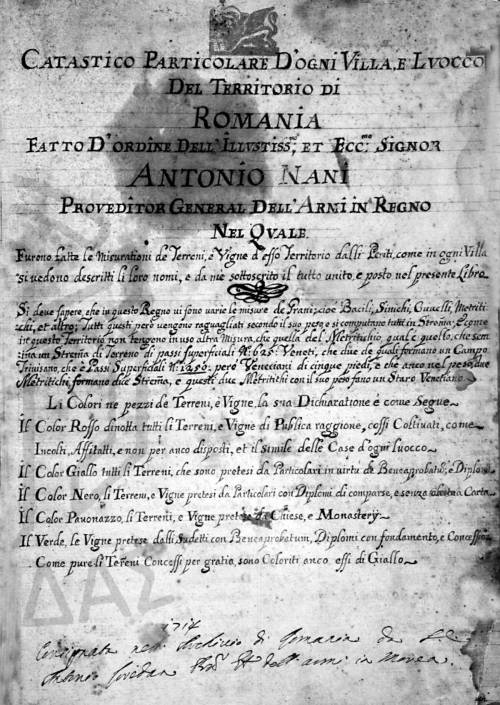 CATASTICO PARTICOLARE D'OGNI VILLA, E LVOCCO
DEL TERRITORIO DI
ROMANIA
FATTO D'ORDINE DELL'ILLVSTISS.mo, ET ECC.mo SIGNOR
ANTONIO NANI
PROVEDITOR GENERAL DELL'ARMI IN REGNO
NEL QVALE
Furono fatte le Misurationi de Terreni, e Vigne d'esso Territorio dalli Periti, come in ogni Villa
si vedono descritti li loro nomi, e da me sottoscrito il tutto unito, e posto nel presente Libro.
Si deve sapere, che in questo Regno vi sono varie le misure de Grani; cioè Bacili, Sinichi, Cuvelli, Metriti=
chi, et altro; Tutti questi però vengono raguagliati secondo il suo peso, e si computano tutti in Strema; E come
in questo Territorio non tengono in uso altra Misura, che quella del Metritichio, qual è quello, che sem=
ina un Strema di Terreno di passi superficiali N.o 625: Veneti, che due de quali formano un Campo
Trivisano, che è Passi Superficiali N.o 1250: però Veneciani di cinque piedi, e che anco nel peso, due
Metritichi, formano due Strema, e questi due Metritichi con il suo peso fano un Staro Venetiano.
Li Colori ne pezzi de Terreni, e Vigne, la sua Dichiaratione è come Segue
Il Color Rosso dinotta tutti li Terreni, e Vigne di Publica raggione, cossi Coltivati, come
Incolti, Affitatti, e non per anco disposti, et il simile delle Case d'ogni luocco
Il Color Giallo tutti li Terreni, che sono pretesi da Particolari in virtù de Beneaprobatis, e Diplomi
Il Color Nero, li Terreni, e Vigne pretesi da Particolari con Diplomi di comparse, e senza Carta
Il Color Pavonazzo, li Terreni, e Vigne pretese da Chiese, e Monasterj
Il Verde, le Vigne pretese dalli Sudetti con Beneaprobatum, Diplomi con fondamento, e Concessioni
Come pure li Terreni Concessi per gratia, sono Coloriti anco essi di Giallo
ΔΑΣ
1714
Consignata nell' Archivio di Romania da
Antonio dell' armi in Morea.